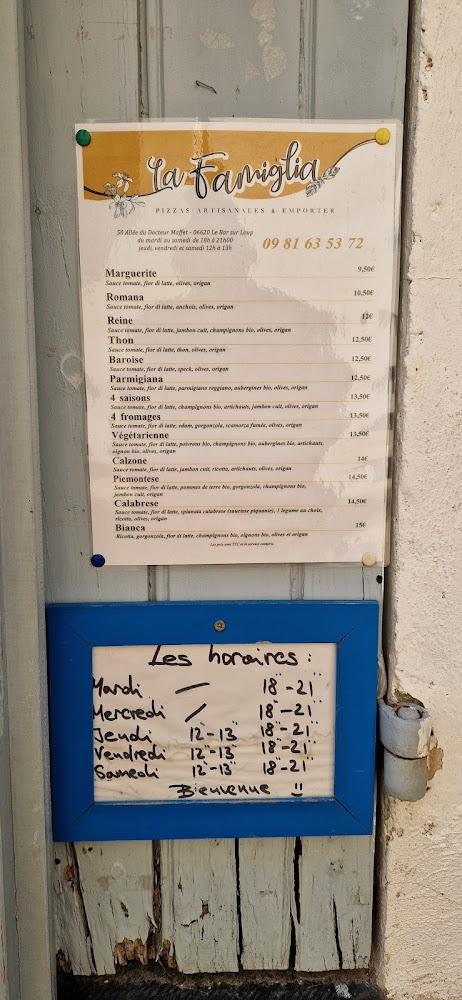 La Famiglia
PIZZAS ARTISANALES À EMPORTER
50 Allée du Docteur Maffet - 06620 Le Bar sur Loup
du mardi au samedi de 18h à 21h00
jeudi, vendredi et samedi 12h à 13h
09 81 63 53 72
Marguerite 9,50€
Sauce tomate, fior di latte, olives, origan
Romana 10,50€
Sauce tomate, fior di latte, anchois, olives, origan
Reine 12€
Sauce tomate, fior di latte, jambon cuit, champignons bio, olives, origan
Thon 12,50€
Sauce tomate, fior di latte, thon, olives, origan
Baroise 12,50€
Sauce tomate, fior di latte, speck, olives, origan
Parmigiana 12,50€
Sauce tomate, fior di latte, parmigiano reggiano, aubergines bio, olives, origan
4 saisons 13,50€
Sauce tomate, fior di latte, champignons bio, artichauts, jambon cuit, olives, origan
4 fromages 13,50€
Sauce tomate, fior di latte, edam, gorgonzola, scamorza fumée, olives, origan
Végétarienne 13,50€
Sauce tomate, fior di latte, poivrons bio, champignons bio, aubergines bio, artichauts,
oignon bio, olives, origan
Calzone 14€
Sauce tomate, fior di latte, jambon cuit, ricotta, artichauts, olives, origan
Piemontese 14,50€
Sauce tomate, fior di latte, pommes de terre bio, gorgonzola, champignons bio,
jambon cuit, origan
Calabrese 14,50€
Sauce tomate, fior di latte, spianata calabrese (saucisse piquante), 1 legume au choix,
ricotta, olives, origan
Bianca 15€
Ricotta, gorgonzola, fior di latte, champignons bio, oignons bio, olives et origan
Les prix sont TTC et le service compris.
Les horaires :
Mardi — 18h-21h
Mercredi / 18h-21h
Jeudi 12h-13h 18h-21h
Vendredi 12h-13h 18h-21h
Samedi 12h-13h 18h-21h
Bienvenue !!